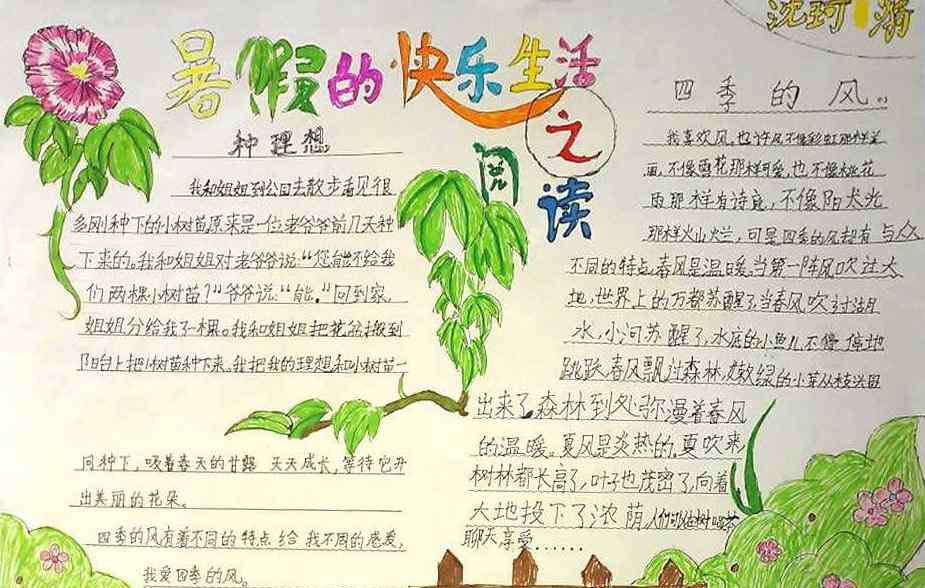 沈珂
暑假的快乐生活
之
阅
读
种理想
我和姐姐到公园去散步看见很
多刚种下的小树苗,原来是一位老爷爷前几天种
下来的。我和姐姐对老爷爷说:“您能不给我
们两棵小树苗?”爷爷说:“能。”回到家,
姐姐分给我了一棵。我和姐姐把花盆搬到
阳台上把小树苗种下来。我把我的理想和小树苗一
同种下,吸着春天的甘露 天天成长,等待它开
出美丽的花朵。
四季的风有着不同的特点 给 我不同的
我爱四季的风。
四季的风。
我喜欢风。也许风不像彩虹那样美
丽,不像雪花那样可爱,也不像桃花
雨那样有诗意,不像阳光
那样火山烂,可是四季的风却有与人
不同的特点,春风是温暖,当第一阵风吹过大
地,世界上的万都苏醒了,当春风吹过湖
水,小河苏醒了,水底的小鱼儿不停地
跳跃,春风飘过森林,嫩绿的小芽从枝头冒
出来了,森林到处弥漫着春风
的温暖。夏风是炎热的,夏吹来
树林都长高了,叶子也茂密了,向着
大地投下了浓荫,人们可以在树喝茶
聊天享受……